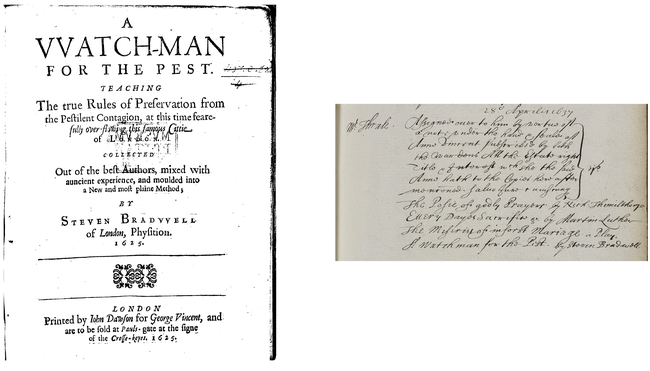 A
VVATCH-MAN
FOR THE PEST.
TEACHING
The true Rules of Preservation from
the Pestilent Contagion, at this time feare-
fully over-flowing this famous Cittie
of LONDON
COLLECTED
Out of the best Authors, mixed with
auncient experience, and moulded into
a New and most plaine Method;
BY
STEVEN BRADVVELL
of London, Physition.
1625.
LONDON
Printed by Iohn Dawson for George Vincent, and
are to be sold at Pauls-gate at the signe
of the Crosse-keyes. 1625.
28th Aprill 1637
Mr Thrale.
Assigned over to him by vertue of
a note under the hand & seale of
Anne Vincent subscribed by both
the wardens All the Estate right
Title & Interest which the said
Anne hath to the Copies hereafter
mencioned. Salvo Jure cuiuscunq
The Posie of godly Prayers by Nich
Every Dayes Sacrifice by Martin Luther
The Miseries of inforst Mariage a Play
A Watchman for the Pest. by Steven Bradwell.